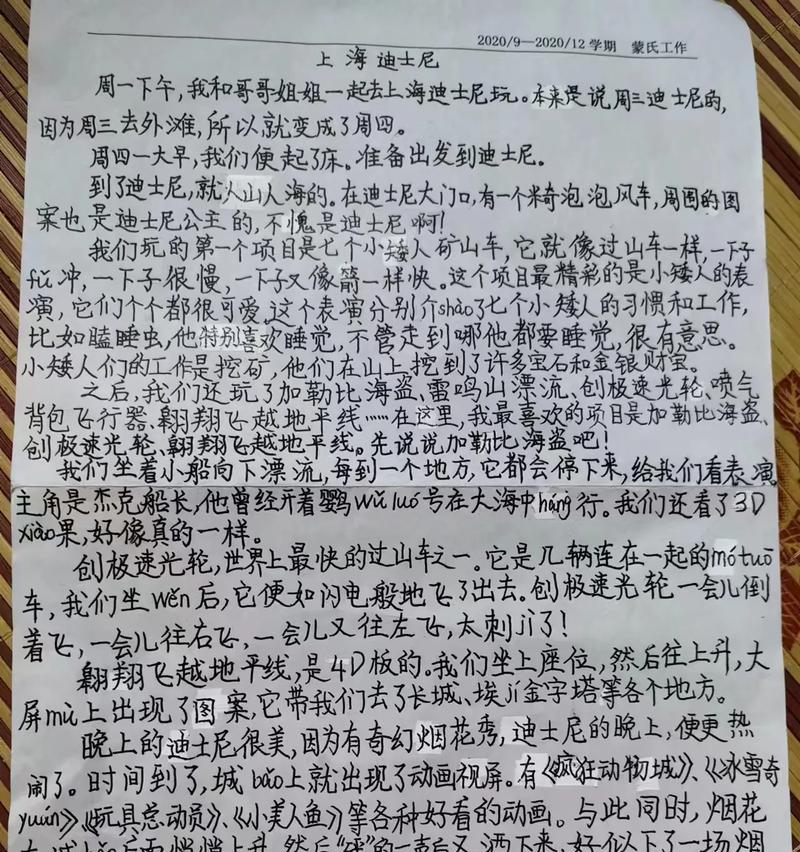 2020/9—2020/12 学期 蒙氏工作
上海迪士尼
周一下午,我和哥哥姐姐一起去上海迪士尼玩。本来是说周三迪士尼的,
因为周三去外滩,所以就变成了周四。
周四一大早,我们便起了床。准备出发到迪士尼。
到了迪士尼,就人山人海的。在迪士尼大门口,有一个米奇泡泡风车,周围的图
案也是迪士尼公主的,不愧是迪士尼啊!
我们玩的第一个项目是七个小矮人矿山车,它就像过山车一样,一下子
fǔ冲,一下子很慢,一下子又像箭一样快。这个项目最精彩的是小矮人的表
演,它们个个都很可爱。这个表演分别介shào了七个小矮人的习惯和工作,
比如瞌睡虫,他特别喜欢睡觉,不管走到哪他都要睡觉,很有意思。
小矮人们的工作是挖矿,他们在山上挖到了许多宝石和金银财宝。
之后,我们还玩了加勒比海盗、雷鸣山漂流、创极速光轮、喷气
背包飞行器、翱翔飞越地平线……在这里,我最喜欢的项目是加勒比海盗、
创极速光轮、翱翔飞越地平线。先说说加勒比海盗吧!
我们坐着小船向下漂流,每到一个地方,它都会停下来,给我们看表演
主角是杰克船长,他曾经开着鹦wǔ luó号在大海中háng行。我们还看了3D
xiào果,好像真的一样。
创极速光轮,世界上最快的过山车之一。它是几辆连在一起的mó tuō
车,我们坐wěn后,它便如闪电般地飞了出去。创极速光轮一会儿倒
着飞,一会儿往右飞,一会儿又往左飞,太刺jī了!
翱翔飞越地平线,是4D板的。我们坐上座位,然后往上升,大
屏mù上出现了图案,它带我们去了长城、埃jí金字塔等各个地方。
晚上的迪士尼很美,因为有奇幻烟花秀,迪士尼的晚上,便更热
闹了。时间到了,城bǎo上就出现了动画视屏。有《疯狂动物城》、《冰雪奇
yuán》《玩具总动员》、《小美人鱼》等各种好看的动画。与此同时,烟花